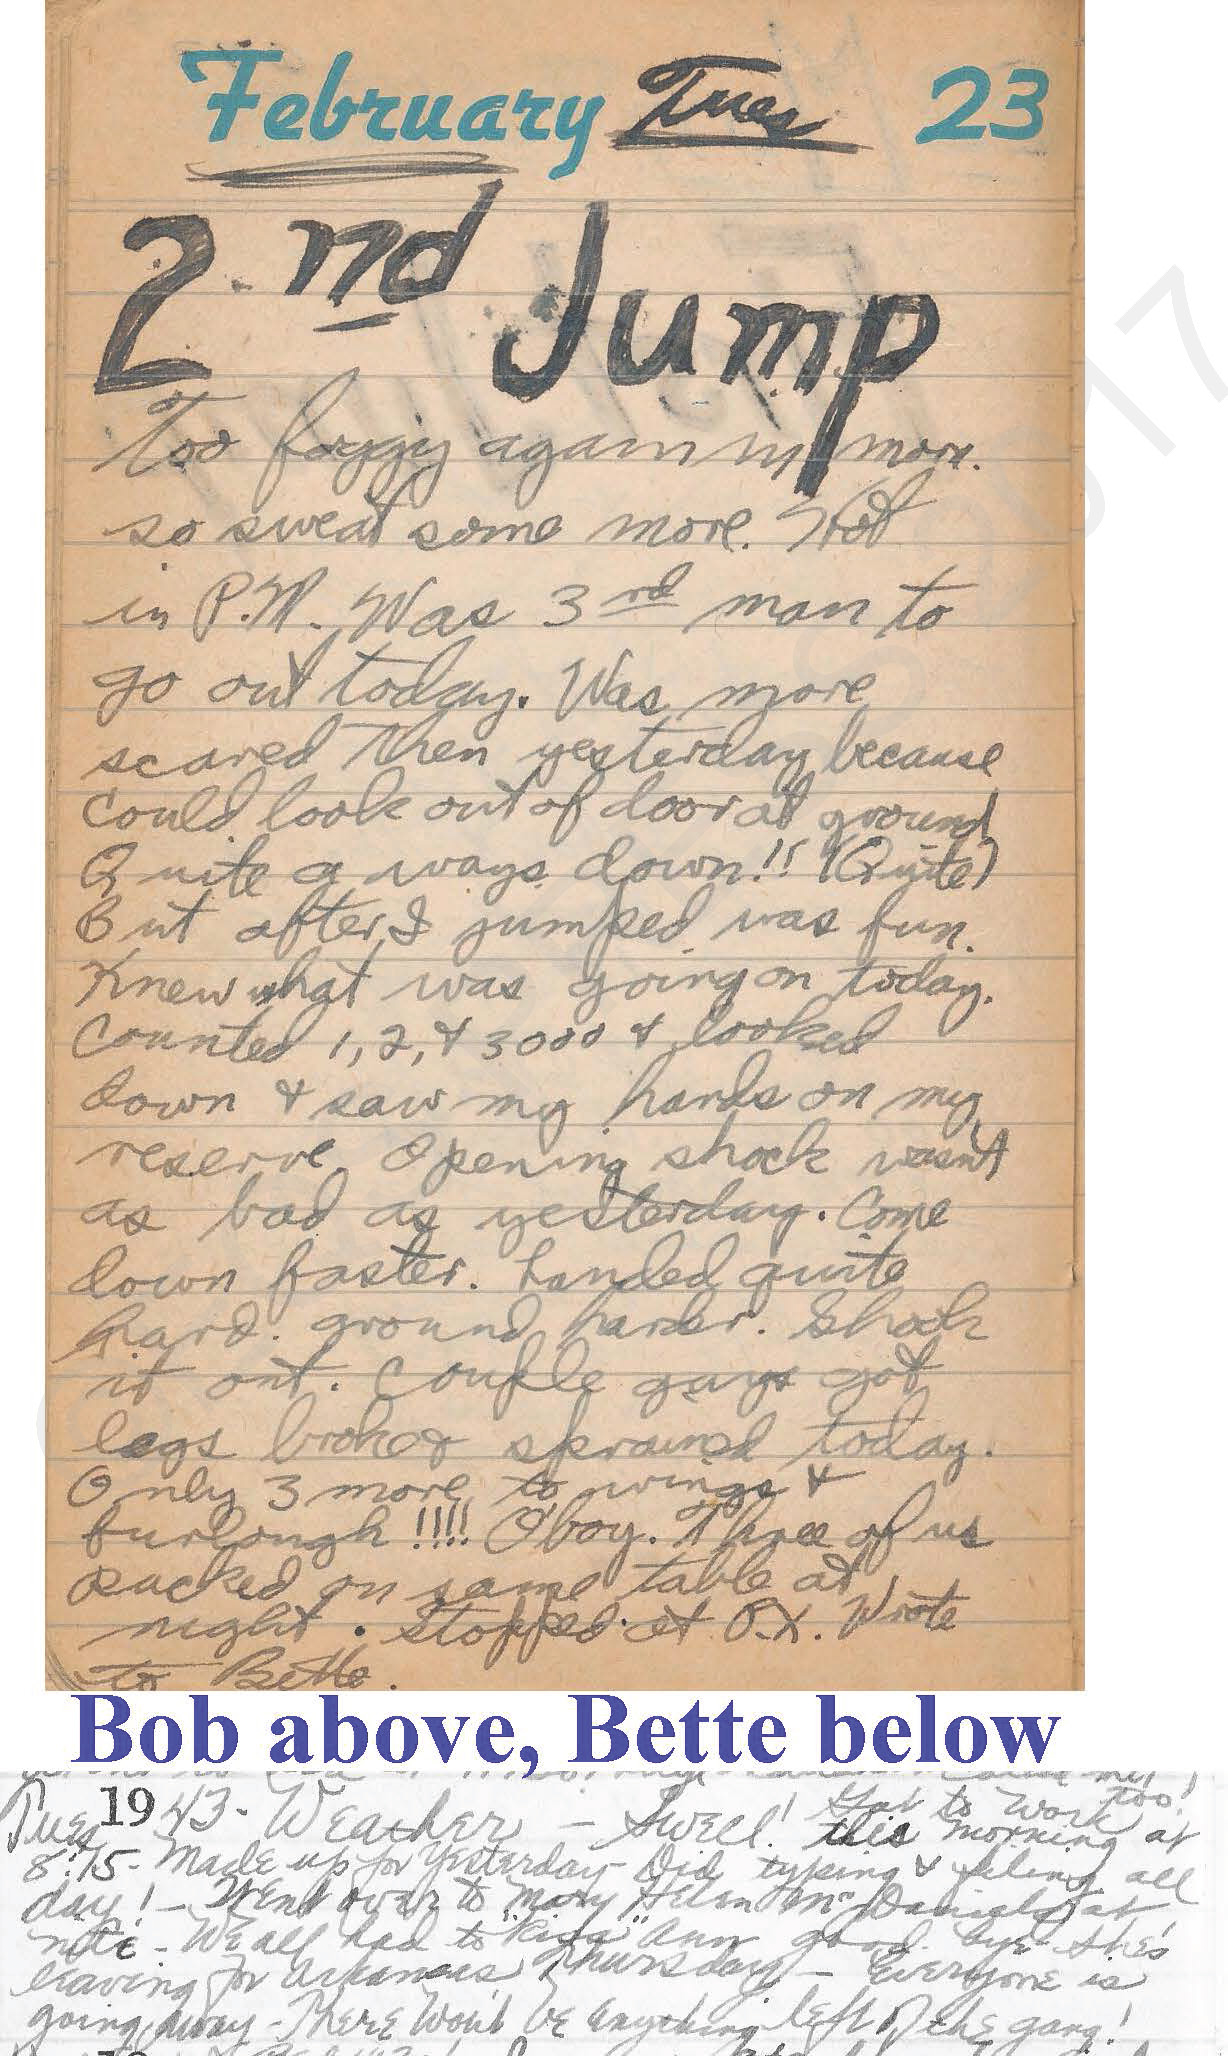 February Tues 23
2nd Jump
Too foggy again in morn.
so sweat some more. Hot
in P.M. Was 3rd man to
go out today. Was more
scared then yesterday because
could look out of door at ground
Quite a ways down!! (Quite)
But after I jumped was fun.
Knew what was going on today.
Counted 1, 2, & 3000 & looked
down & saw my hands on my
reserve. Opening shock wasn't
as bad as yesterday. Come
down faster. Landed quite
hard. ground harder. Shook
it out. Couple guys got
legs broke & sprained today.
Only 3 more to wings &
furlough !!!! O'boy. Three of us
packed on same table at
night. Stopped at P.X. Wrote
to Bette.
Bob above, Bette below
too!
Tues 1943- Weather - Swell! Got to work this morning at
8:15- Made up for Yesterday- Did typing & filing all
day! - Went over to Mary Helen Daniels at
nite - We all had to "kiss" Ann good bye- She's
leaving for Arkansas Thursday - Everyone is
going away - There won't be anything left of the gang!
17